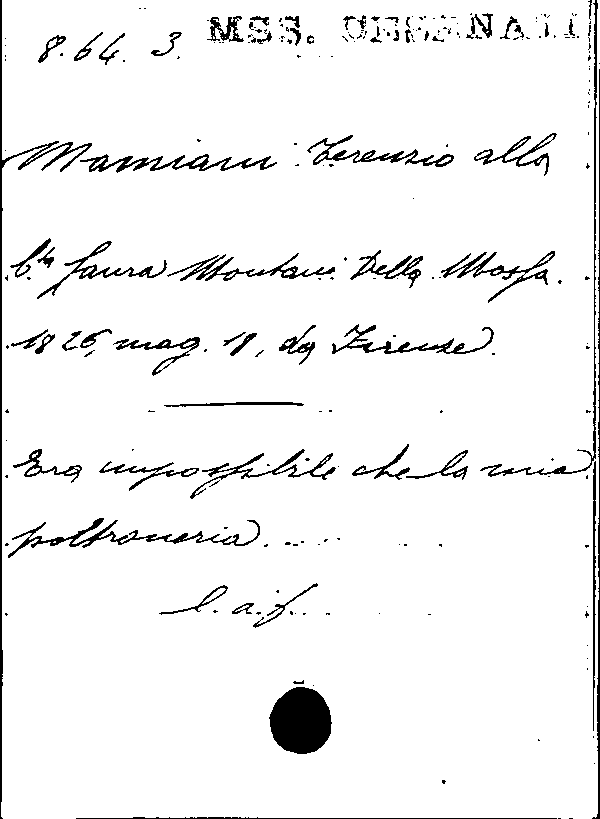 8.64. 3. MSS. CESENATI
Mamiani Terenzio alla
C.ta Laura Montani Della Massa.
1826, mag. 18, da Firenze.
Era impossibile che la mia
poltroneria.....
l. a. f.